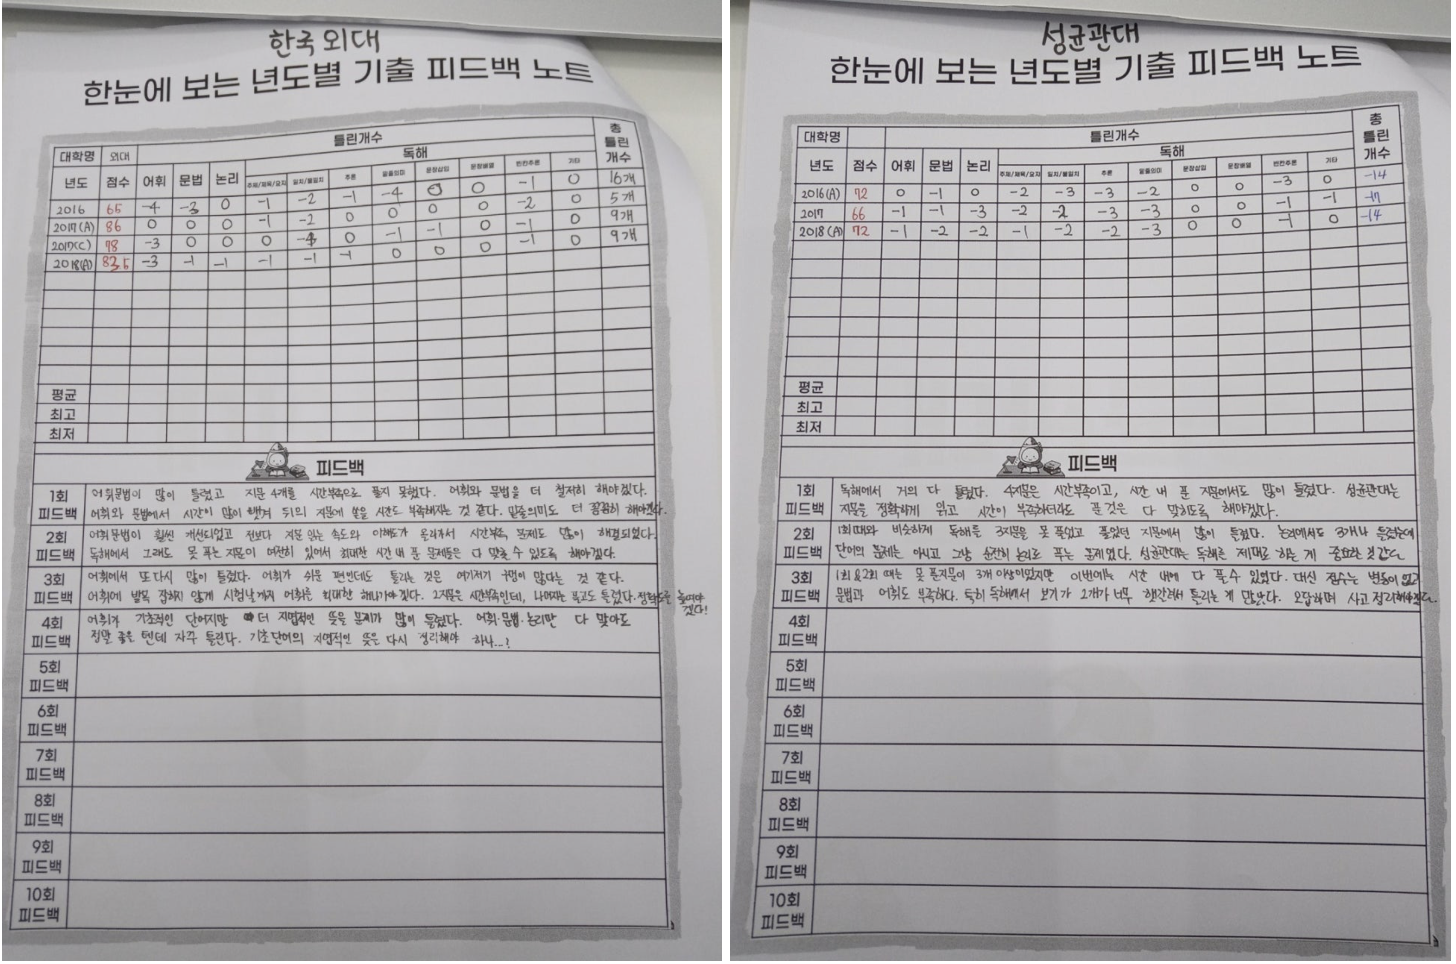 한국외대
한눈에 보는 년도별 기출 피드백 노트
대학명 외대 틀린개수 총 틀린 개수
독해
년도 점수 어휘 문법 논리 주제/제목/요지 일치/불일치 추론 밑줄의미 문장삽입 문장배열 빈칸추론 기타
2016 65 -4 -3 0 -1 -2 -1 -4 0 0 -1 0 16개
2017(A) 86 0 0 0 -1 -2 0 0 0 0 -2 0 5개
2017(C) 78 -3 0 0 0 -4 0 -1 -1 0 -1 0 9개
2018(A) 83.5 -3 -1 -1 -1 -1 -1 0 0 0 -1 0 9개
평균
최고
최저
피드백
1회 피드백
어휘문법이 많이 틀렸고 지문 4개를 시간부족으로 풀지 못했다. 어휘와 문법을 더 철저히 해야겠다.
어휘와 문법에서 시간이 많이 뺏겨 뒤의 지문에 쏟을 시간도 부족해지는 것 같다. 밑줄의미도 더 꼼꼼히 해야겠다.
2회 피드백
어휘문법이 훨씬 개선되었고 전보다 지문 읽는 속도와 이해도가 올라가서 시간부족 문제도 많이 해결되었다.
독해에서 그래도 못 푸는 지문이 여전히 있어서 최대한 시간 내 푼 문제들은 다 맞출 수 있도록 해야겠다.
3회 피드백
어휘에서 또다시 많이 틀렸다. 어휘가 쉬운 편인데도 틀리는 것은 여기저기 구멍이 많다는 것 같다.
어휘에 발목 잡히지 않게 시험날까지 어휘는 최대한 해나가야겠다. 2지문은 시간부족인데, 나머지는 풀고도 틀렸다. 정확도를 높여야겠다!
4회 피드백
어휘가 기초적인 단어지만 더 지엽적인 뜻을 묻기가 많이 틀렸다. 어휘·문법·논리만 다 맞아도
정말 좋을 텐데 자주 틀린다. 기초단어의 지엽적인 뜻은 다시 정리해야 하나...?
5회 피드백
6회 피드백
7회 피드백
8회 피드백
9회 피드백
10회 피드백
성균관대
한눈에 보는 년도별 기출 피드백 노트
대학명 틀린개수 총 틀린 개수
독해
년도 점수 어휘 문법 논리 주제/제목/요지 일치/불일치 추론 밑줄의미 문장삽입 문장배열 빈칸추론 기타
2016(A) 72 0 -1 0 -2 -3 -3 -2 0 0 -3 0 -14
2017 66 -1 -1 -3 -2 -2 -3 -3 0 0 -1 -1 -17
2018(A) 72 -1 -2 -2 -1 -2 -2 -3 0 0 -1 0 -14
평균
최고
최저
피드백
1회 피드백
독해에서 거의 다 틀렸다. 4지문은 시간부족이고, 시간 내 푼 지문에서도 많이 틀렸다. 성균관대는
지문을 정확하게 읽고 시간이 부족하더라도 푼 것은 다 맞히도록 해야겠다.
2회 피드백
1회때와 비슷하게 독해를 3지문을 못 풀었고 풀었던 지문에서 많이 틀렸다. 논리에서도 3개나 틀렸는데
단어의 문제는 아니고 그냥 순전히 논리로 푸는 문제였다. 성균관대는 독해를 제대로 하는 게 중요한 것 같다.
3회 피드백
1회&2회 때는 못 푼지문이 3개 이상이었지만 이번에는 시간 내에 다 풀수 있었다. 대신 점수는 변동이 없고
문법과 어휘도 부족하다. 특히 독해에서 보기가 2개가 너무 헷갈려서 틀리는 게 많았다. 오답하며 사고 정리해야겠다.
4회 피드백
5회 피드백
6회 피드백
7회 피드백
8회 피드백
9회 피드백
10회 피드백